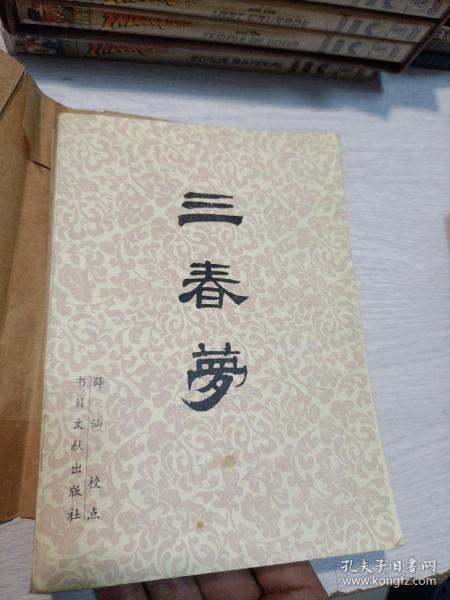 INDIANA JONES
and the
LAST CRUSADE
INDIANA JONES
and the
TEMPLE OF DOOM
INDIANA JONES
BONUS MATERIAL
三春夢
薛汕 校点
书目文献出版社
孔夫子旧书网
www.kongfz.com